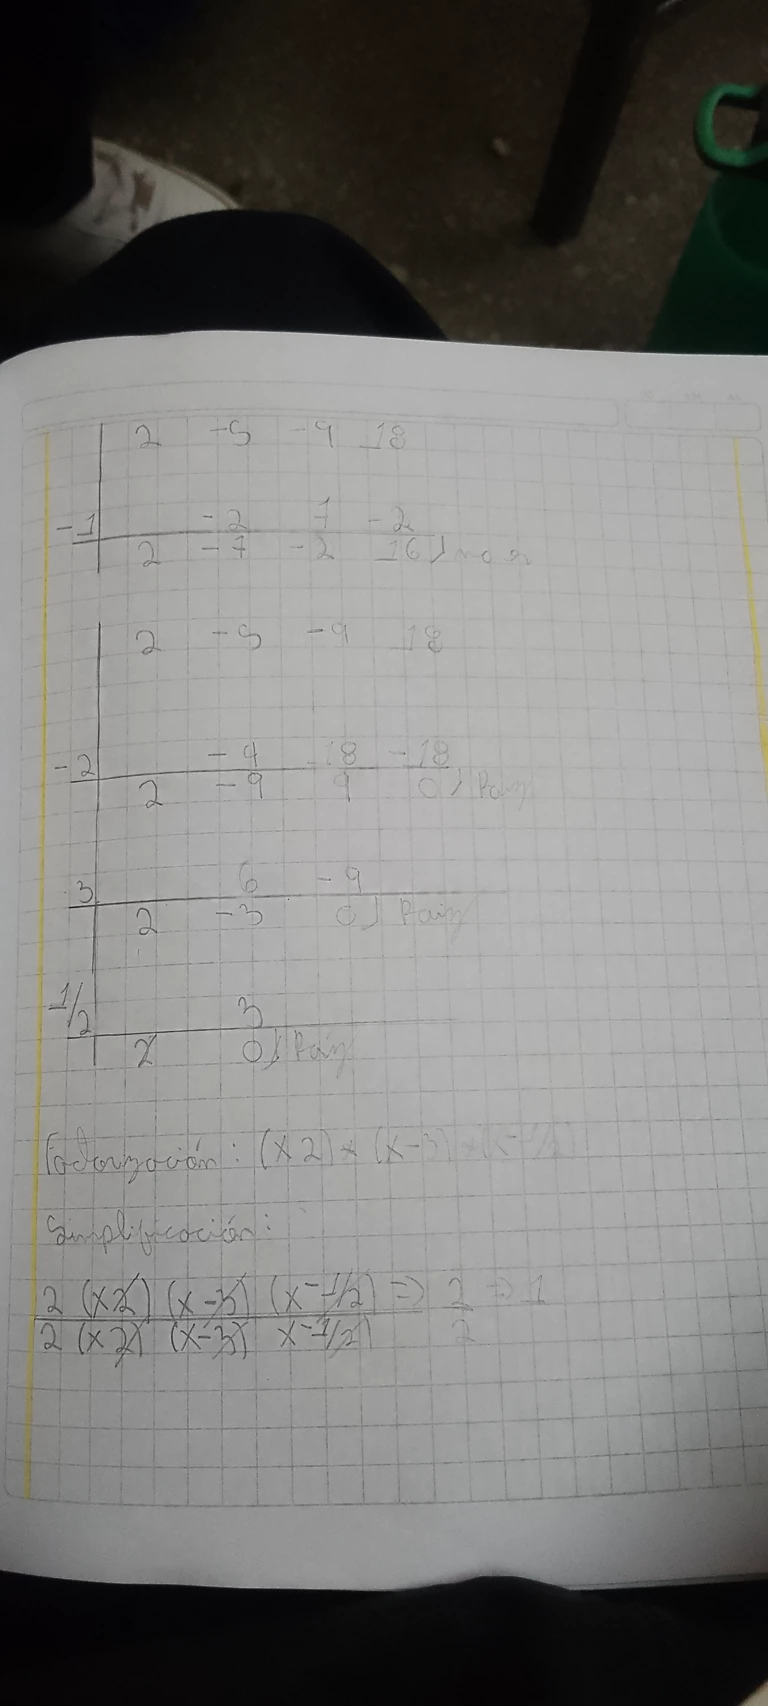 2 -5 -9 18
-1 -2 7 -2
2 -7 -2 16) no
2 -5 -9 18
-2 -4 18 -18
2 -9 9 0)
3 6 -9
2 -3 0) Raiz
1/2 3
2 0) Raiz
(x 2) * (x-3) * (x-1/2)
Simplificación:
2 (x 2) (x-3) (x-1/2) => 2 => 1
2 (x 2) (x-3) x-1/2) 2